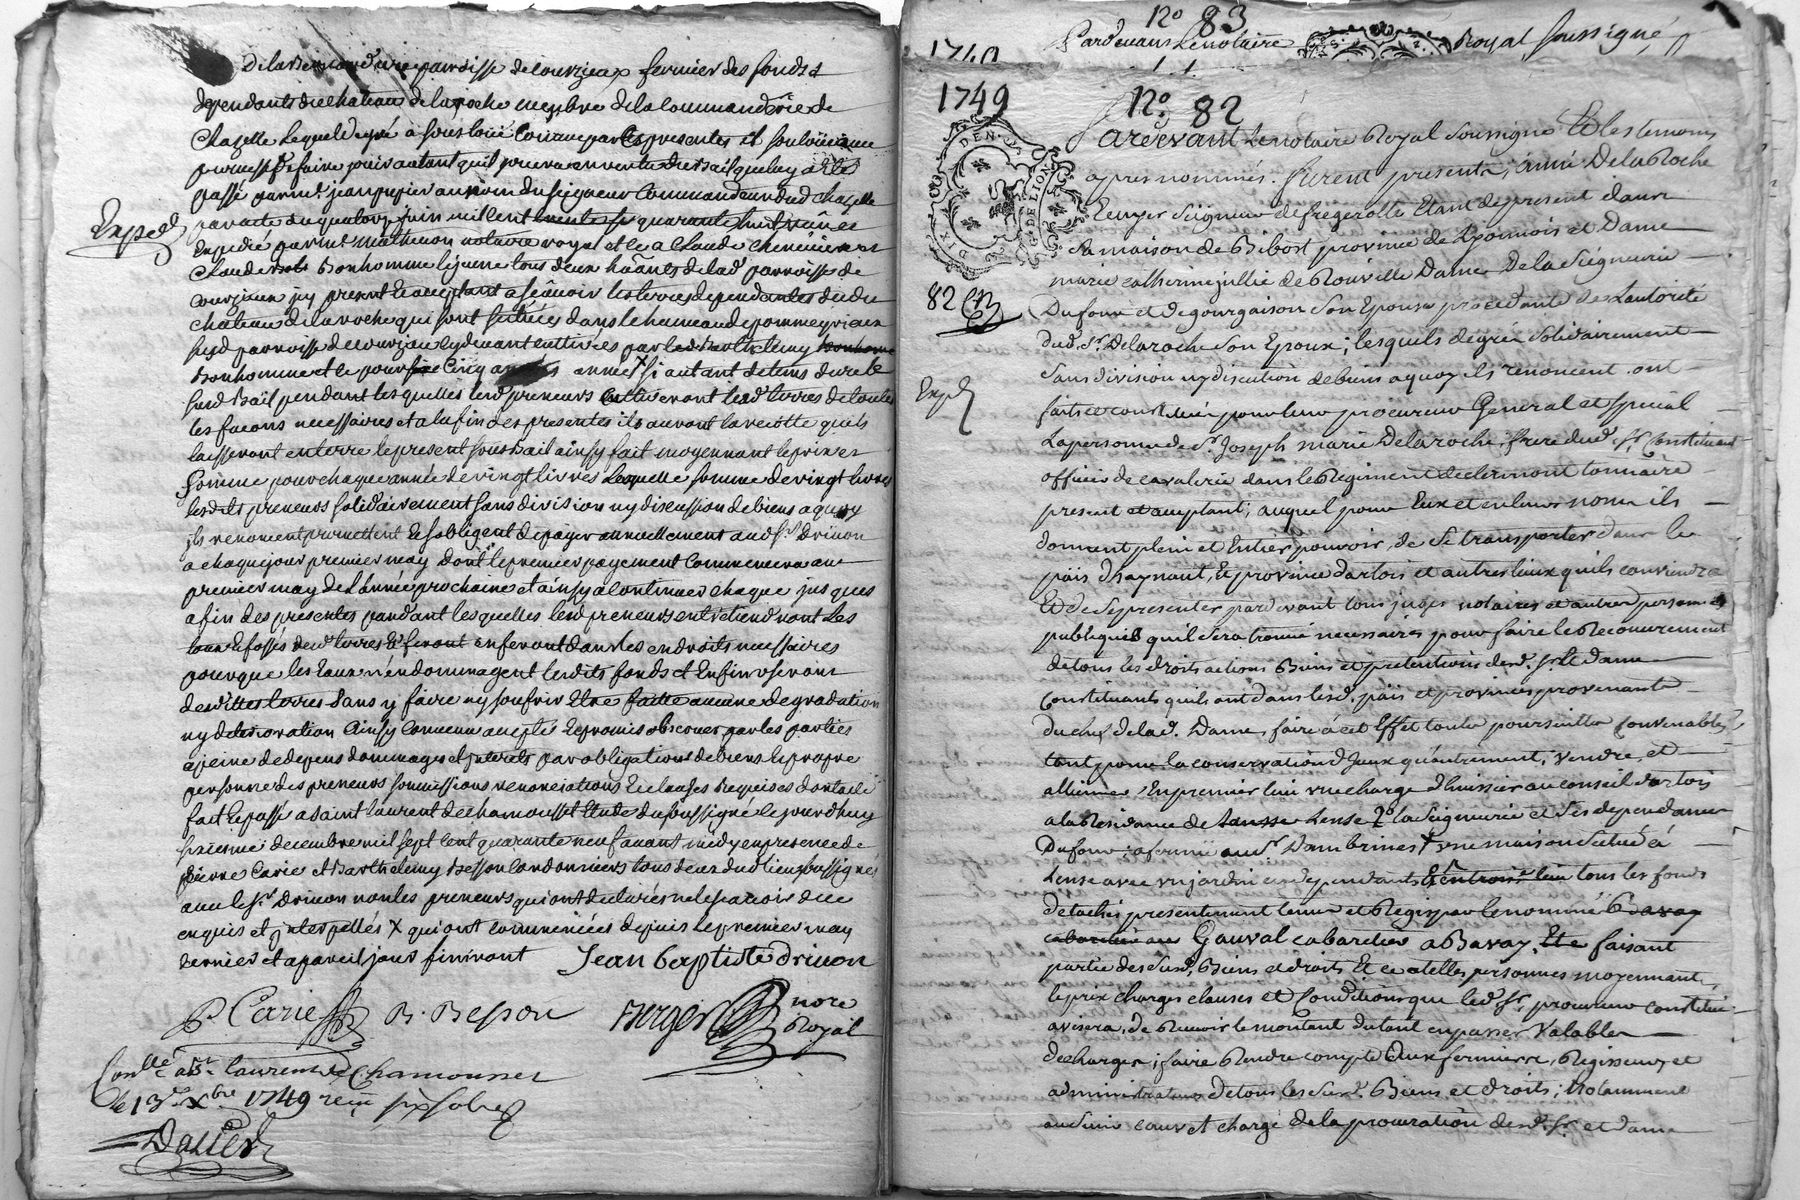 De la Bernardure paroisse de courzieux fermier des fonds &
dependants du chateau de la roche membre de la commanderie de
Chazelle lequel de gré a sous loüé comme par les presentes il sousloüe avec
promesse de faire jouir autant qu'il pourra en vertu du Bail que luy a été
passé par m.r jean pupier au nom du seigneur Commandeur dud Chazelle
par acte du quatorze juin mil sept cent quarante huit
Expedié par m.e mathevon notaire royal et a Claude
Claude Bonhomme le jeune tous deux de lad parroisse de
Courzieux icy present & acceptant a sçavoir les terres dependantes dudit
chateau de la roche qui sont scituées dans le hameau de pommeyrieux
susd parroisse de courzieu cy devant cultivées par led Barthelemy
Bonhomme et le pour cinq années si autant de tems dure le
susd Bail pendant lesquelles lesd preneurs cultiveront lesd terres de toutes
les façons necessaires et a la fin des presentes ils auront la recolte quils
laisseront en terre le present sous Bail ainsy fait moyennant le prix et
Somme pour chaque année de vingt livres laquelle somme de vingt livres
lesdits preneurs solidairement sans division ny discussion de biens a quoy
ils renoncent promettent & s'obligent de payer annuellement aud S.r Drivon
a chaque jour premier may dont le premier payement commencera au
premier may de l'année prochaine et ainsy a continuer chaque jusques
a fin des presentes pendant lesquelles lesd preneurs entretiendront les
fossés desd terres & feront en feront dans les endroits necessaires
pour que les Eaux n'endommagent lesdits fonds et Enfin useront
desdittes terres sans y faire ny soufrir Etre faitte aucune degradation
ny deterioration Ainsy Convenu accepté & promis observer par les parties
a peine de depens dommages et interets par obligation de biens & propre
personne des preneurs soumissions renonciations & clauses requises dont acte
fait & passé a saint laurent de chamousset Etude du soussigné le jourdhuy
decembre mil sept cent quarante neuf avant midy en presence de
pierre Carie et Barthelemy Besson cordonniers tous deux dud lieu soussignés
avec le S.r Drivon non les preneurs qui ont declaré ne le sçavoir de ce
enquis et interpellés X qui ont commencées depuis le premier may
dernier et a pareil jour finiront Jean Baptiste drivon
P. Carie B. Besson Berger nore
Royal
Con.lle a S.t laurent de Chamousset
le 13 Xbre 1749 recu six sols
Dallier
Exped
N.o 83
1749 Pardevant le notaire Royal soussigné
1749 N.o 82
DE LION
82
Exp.d
Pardevant le notaire Royal soussigné Et les temoins
apres nommés. furent presents, aimé De la Roche
Seigneur de fregerolle Etant de present dans
sa maison de Bibost province de Lyonnois et Dame
marie catherine jullie de Rouville Dame De la Seigneurie
Dufour et de gourgaison Son Epouse procedante de L'autorité
dud. S.r De la roche Son Epoux; lesquels de gré Solidairement
Sans division ny discution de biens a quoy ils renoncent. ont
fait et constitué pour leur procureur General et special
La personne de S.r Joseph marie De la roche, frere dud. S.r Constituant
officier de cavalerie dans le Regiment de clermont tonnaire
present et acceptant; auquel pour Eux et en leurs noms ils
donnent plein et Entier pouvoir, de Se transporter dans le
païs d'haynaut, & province d'artois et autres lieux qu'ils conviendra
Et de Se presenter pardevant tous juges notaires et autres personnes
publiques qu'il sera trouvé necessaires pour faire le Recouvrement
de tous les droits actions Biens et pretentions desd. S.r & Dame
Constituants qu'ils ont dans lesd. païs et provinces provenants
du chef de lad. Dame, faire à cet Effet toutes poursuittes convenables
tant pour la conservation d'yceux qu'autrement; vendre, et
alliener En premier lieu une charge d'huissier au conseil d'artois
a la Residance de Lense 2.o la Seigneurie et Ses dependances
Dufour; affermé au S.r Dambrines X une maison scitué à
Lense avec un jardin en dependant & tous les fonds
détachés presentement tenu et Regis par le nommé
Gauval cabaretier a Bavay. faisant
partie des susd. Biens et droits Et ce a telles personnes moyennant
le prix charges clauses et Conditions que led. S.r procureur constitué
avisera; de Recevoir le montant du tout en passer Valables
decharges; faire Rendre compte Aux fermiers, Regisseurs et
administrateurs de tous les susd. Biens et droits; Notamment
au Sieur chargé de la procuration desd. S.r et dame